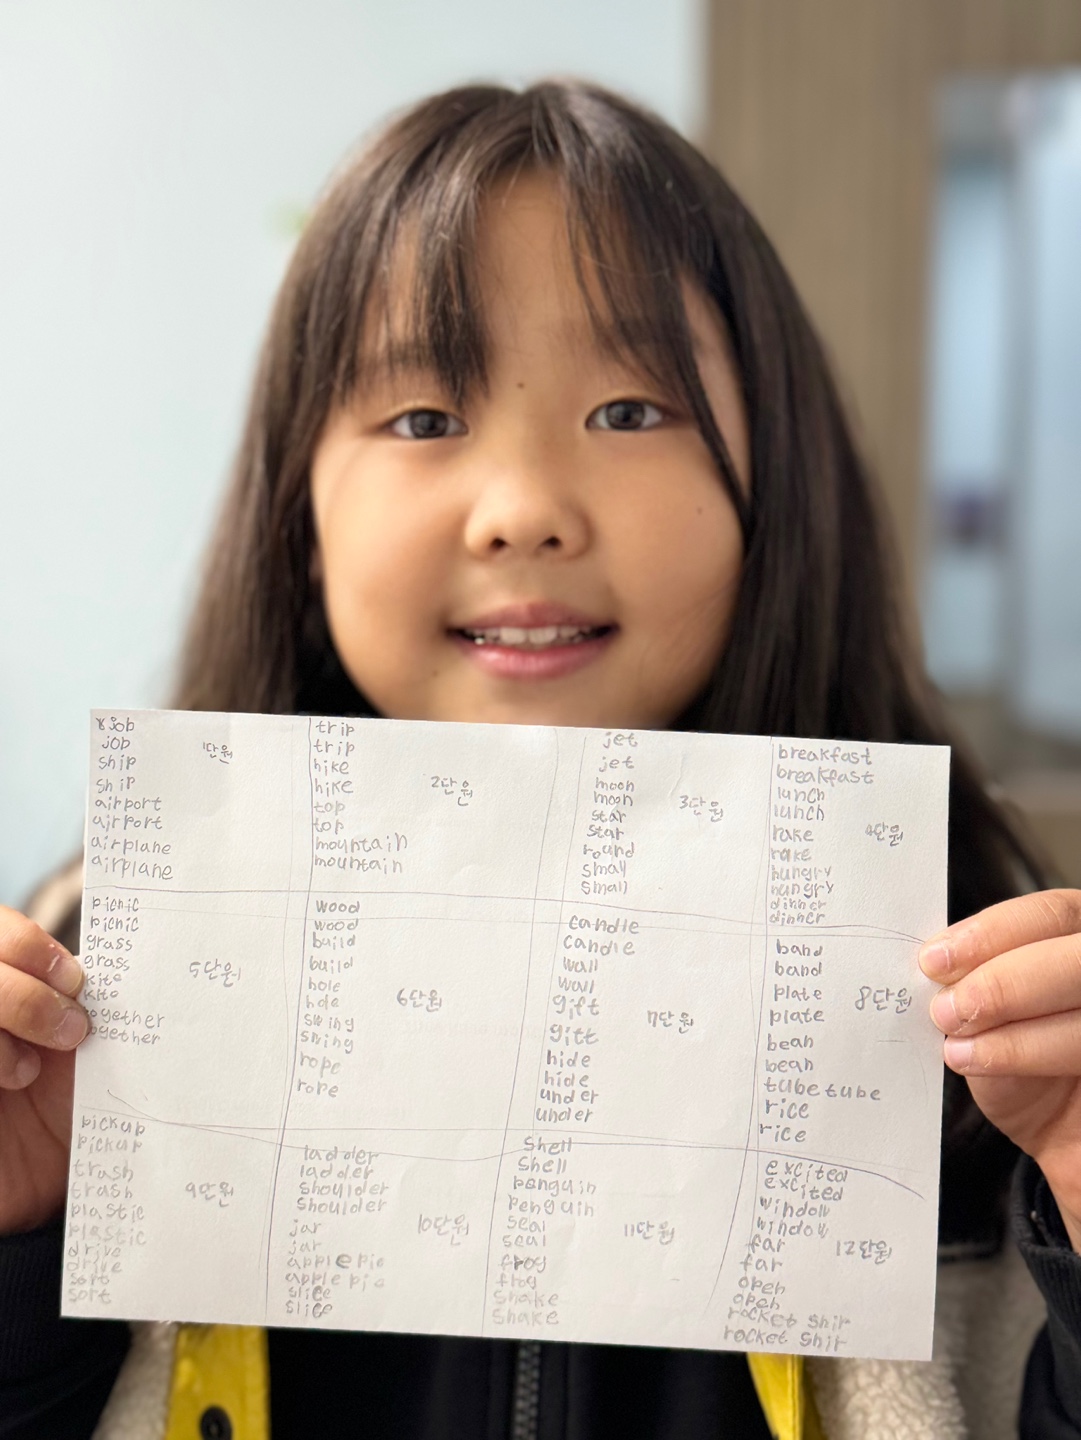 job
job
ship
ship
airport
airport
airplane
airplane
1단원
trip
trip
hike
hike
top
top
mountain
mountain
2단원
jet
jet
moon
moon
star
star
round
small
small
3단원
breakfast
breakfast
lunch
lunch
rake
rake
hungry
hungry
dinner
dinner
4단원
picnic
picnic
grass
grass
kite
kite
together
together
5단원
wood
wood
build
build
hole
hole
swing
swing
rope
rope
6단원
candle
candle
wall
wall
gift
gift
hide
hide
under
under
7단원
band
band
plate
plate
bean
bean
tube tube
rice
rice
8단원
pickup
pickup
trash
trash
plastic
plastic
drive
drive
sort
sort
9단원
ladder
ladder
shoulder
shoulder
jar
jar
apple pie
apple pie
slice
slice
10단원
shell
shell
penguin
penguin
seal
seal
frog
frog
shake
shake
11단원
excited
excited
window
window
far
far
open
open
rocket ship
rocket ship
12단원